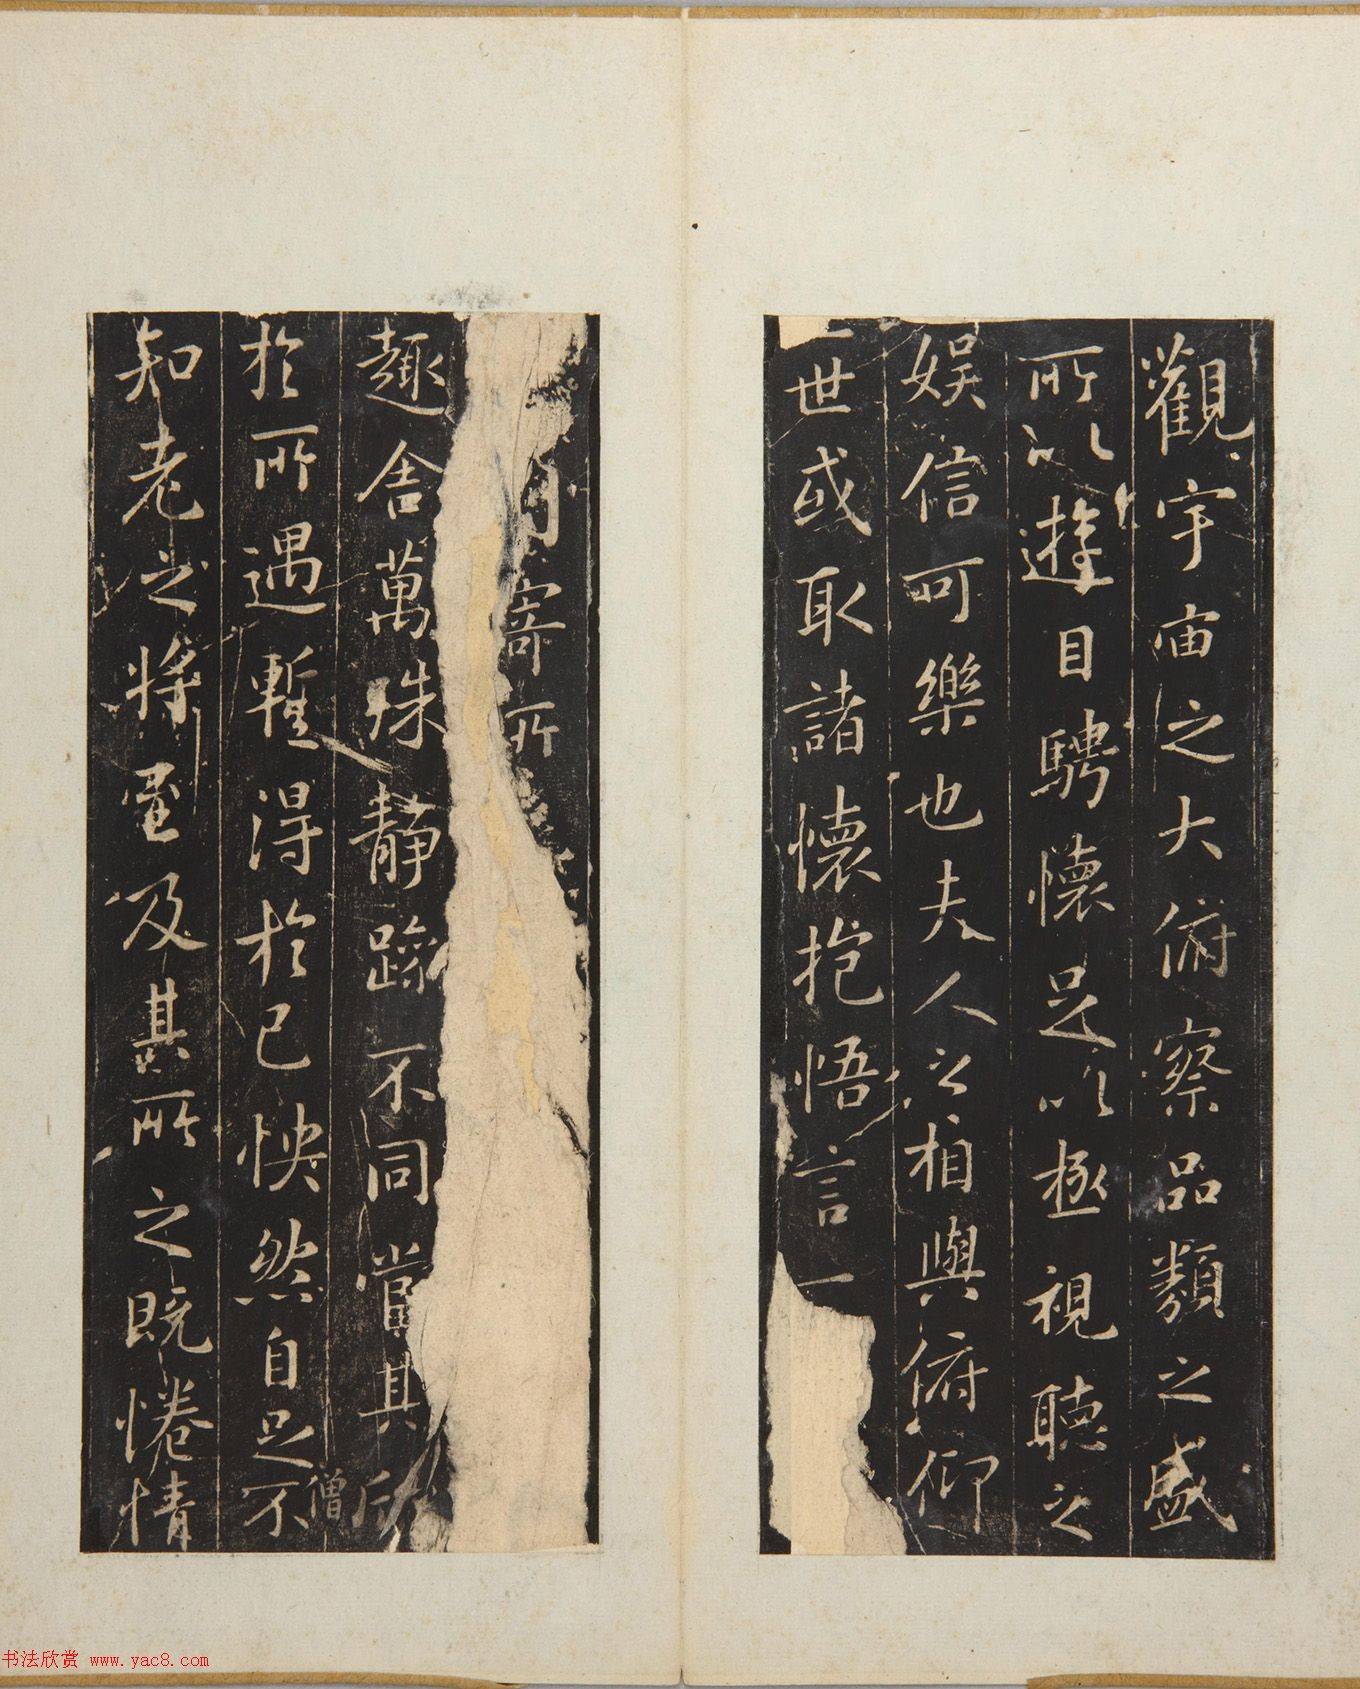 觀宇宙之大俯察品類之盛
所以遊目騁懷足以極視聽之
娛信可樂也夫人之相與俯仰
一世或取諸懷抱悟言一
內
寄所
趣舍萬殊靜躁不同當其欣
於所遇暫得於己怏然自足不
僧
知老之將至及其所之既惓情
书法欣赏 www.yac8.com